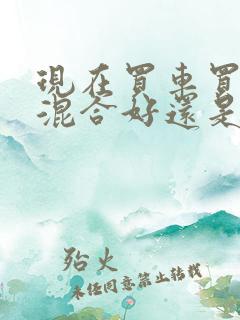 現在買車買
混合好還是
殆火
未經同意禁止轉載